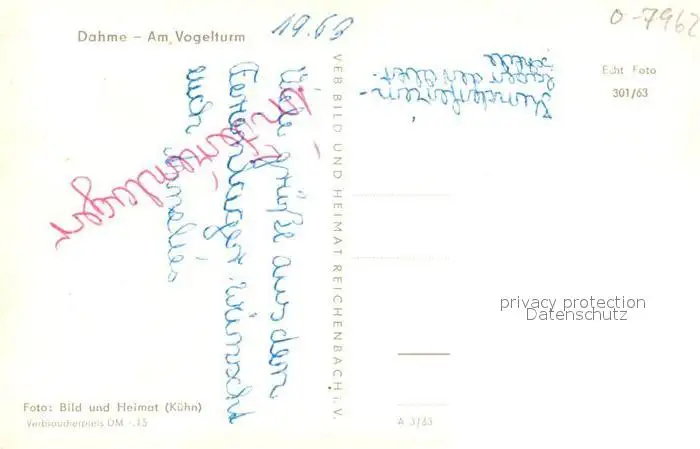 Dahme – Am Vogelturm
19.63
0-7962
Echt Foto
301/63
Viele Grüße aus dem
Ferienlager wünscht
auch
Ferienlager
VEB BILD UND HEIMAT REICHENBACH i. V.
privacy protection
Datenschutz
Foto: Bild und Heimat (Kühn)
Verbraucherpreis DM -.15
A 3/63